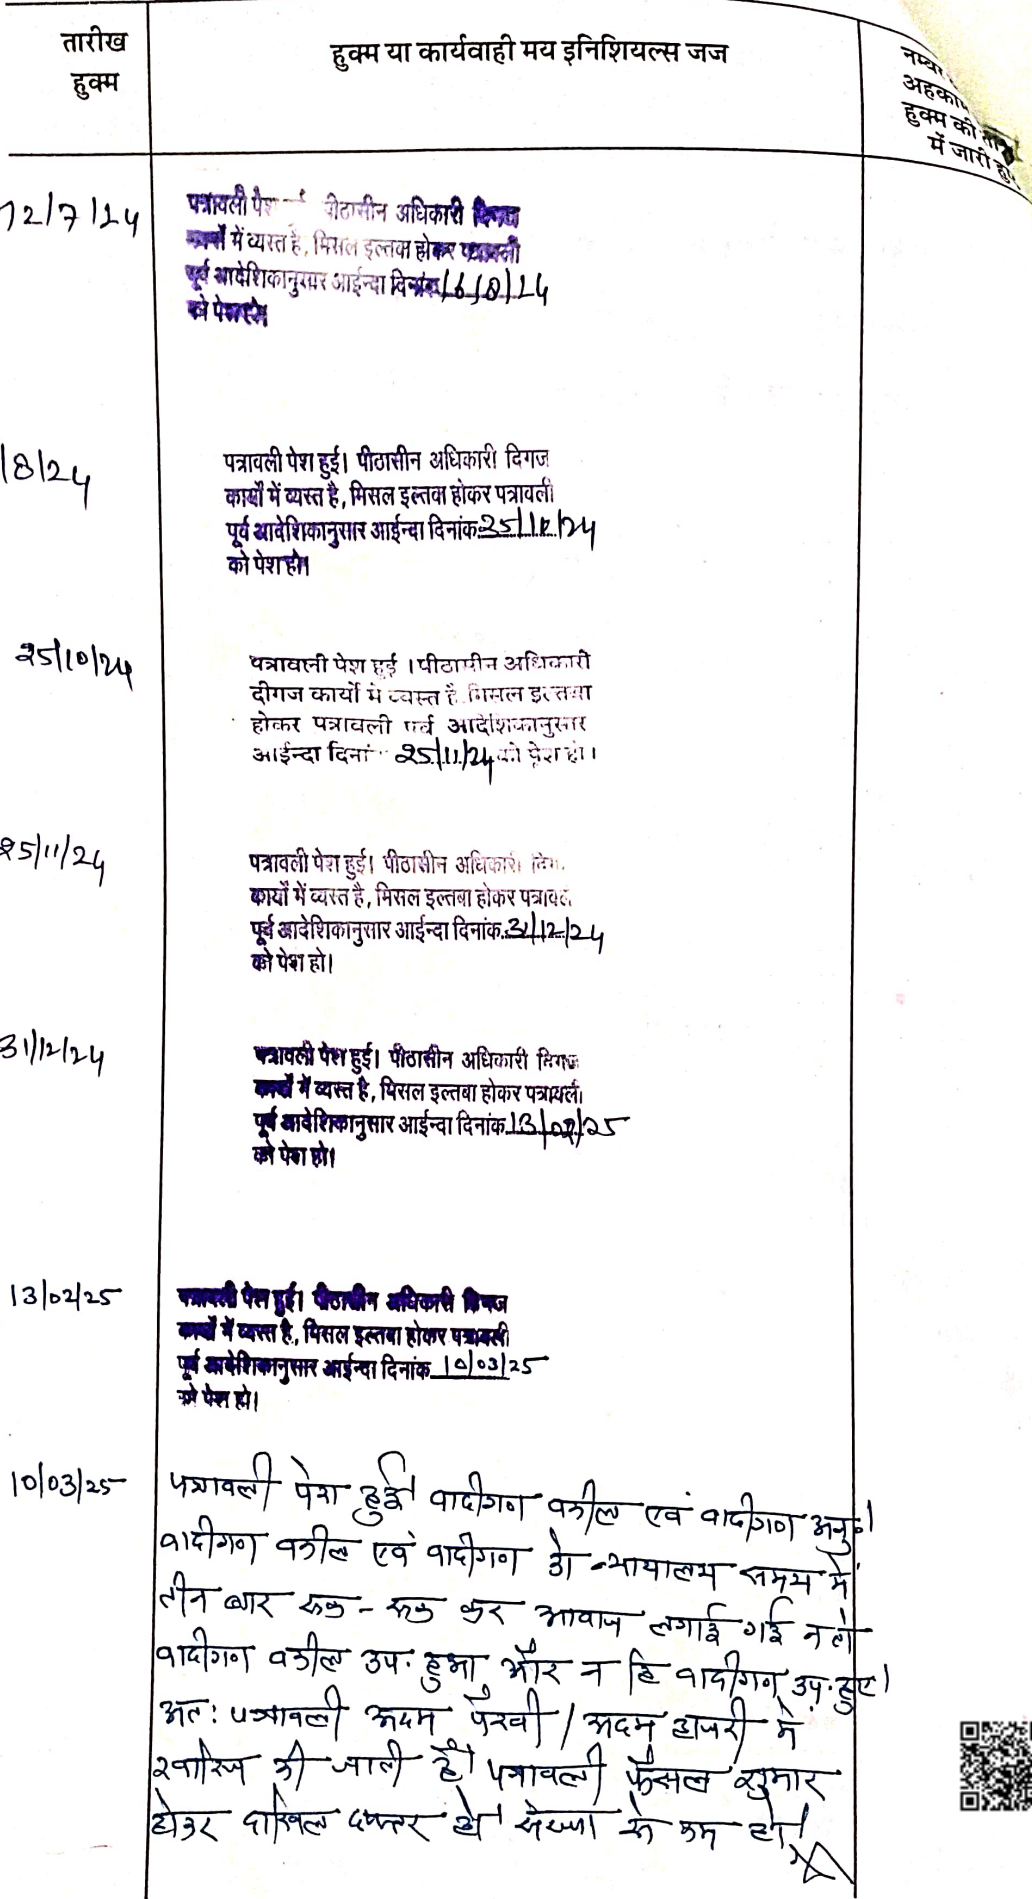 तारीख
हुक्म
हुक्म या कार्यवाही मय इनिशियल्स जज
नम्बर
अहकाम
हुक्म की
में जारी हु
12/7/24
पत्रावली पेश पीठासीन अधिकारी दिगज
कार्यो में व्यस्त है, मिसल इल्तवा होकर पत्रावली
पूर्व आदेशिकानुसार आईन्दा दिनांक 16/8/24
को पेश हो।
/8/24
पत्रावली पेश हुई। पीठासीन अधिकारी दिगज
कार्यो में व्यस्त है, मिसल इल्तवा होकर पत्रावली
पूर्व आदेशिकानुसार आईन्दा दिनांक 25/10/24
को पेश हो।
25/10/24
पत्रावली पेश हुई । पीठासीन अधिकारी
दीगज कार्यो में व्यस्त है मिसल इल्तवा
होकर पत्रावली पूर्व आदेशिकानुसार
आईन्दा दिनां 25/11/24 को पेश हो।
25/11/24
पत्रावली पेश हुई। पीठासीन अधिकारी दिग
कार्यो में व्यस्त है, मिसल इल्तवा होकर पत्रावल
पूर्व आदेशिकानुसार आईन्दा दिनांक 31/12/24
को पेश हो।
31/12/24
पत्रावली पेश हुई। पीठासीन अधिकारी दिगज
कार्यो में व्यस्त है, मिसल इल्तवा होकर पत्रावली
पूर्व आदेशिकानुसार आईन्दा दिनांक 13/02/25
को पेश हो।
13/02/25
पत्रावली पेश हुई। पीठासीन अधिकारी दिगज
कार्यो में व्यस्त है, मिसल इल्तवा होकर पत्रावली
पूर्व आदेशिकानुसार आईन्दा दिनांक 10/03/25
को पेश हो।
10/03/25
पत्रावली पेश हुई। वादीगण वकील एवं वादीगण अनु०।
वादीगण वकील एवं वादीगण को न्यायालय समय में
तीन बार रूक - रूक कर आवाज लगाई गई न तो
वादीगण वकील उप. हुआ और न हि वादीगण उप. हुए।
अत: पत्रावली अदम पैरवी / अदम हाजरी में
खारिज की जाती है। पत्रावली फैसल शुमार
होकर दाखिल दफ्तर हो। संख्या से कम हो।